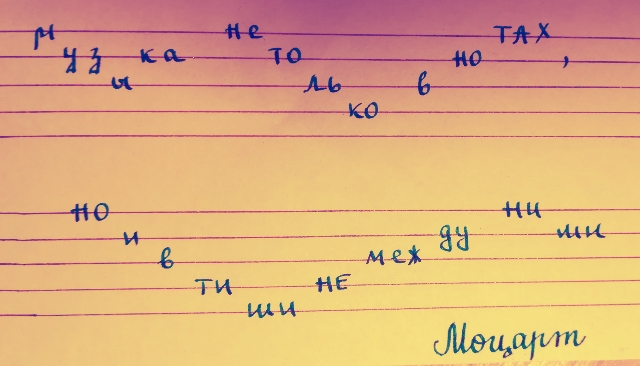 музыка не только в нотах,
но и в тишине между ними
Моцарт